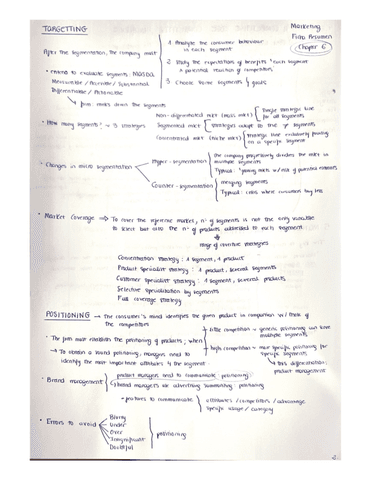 TARGETTING
Marketing
Final Resumen
Chapter 6
After the segmentation, the company must
1 Analyse the consumer behaviour
in each segment
2 Study the expectation of benefits each segment
& potential reaction of competitors
3 Choose those segments & goals
• Criteria to evaluate segments: MASDA
Measurable / Accessible / Substantial
Differentiable / Actionable
• How many segments? → 3 strategies
Non-differentiated mkt (mass mkt)
single strategic line
for all segments
Segmented mkt
strategies adapt to the segments
Concentrated mkt (niche mkt)
strategic line exclusively focusing
on a specific segment
• Changes in micro segmentation
Hyper-segmentation
the company progressively divides the mkt in
multiple segments
Typical:
Counter-segmentation
merging segments
Typical: crisis where consumers buy less
• Market Coverage → To cover the reference market, nº of segments is not the only variable
to select but also the nº of products addressed to each segment.
range of coverage strategies
Concentration strategy: 1 segment, 1 product
Product specialist strategy: 1 product, several segments
Customer specialist strategy: 1 segment, several products
Selective specialization by segments
Full coverage strategy
POSITIONING → The consumer's mind identifies the given product in comparison w/ those of
the competitors
• The firm must establish the positioning of products; when
little competition → generic positioning can have
multiple segments
high competition → more specific positioning for
specific segments
→ To obtain a valid positioning, managers need to
identify the most important attributes 4 the segment
differentiation,
product management
• Brand management
product managers need to communicate: positioning
brand managers use advertising transmitting: positioning
→ features to communicate
attributes / competitors / advantage
specific usage / category
• Errors to avoid
Blurry
Under
Over
Insignificant
Doubtful
positioning